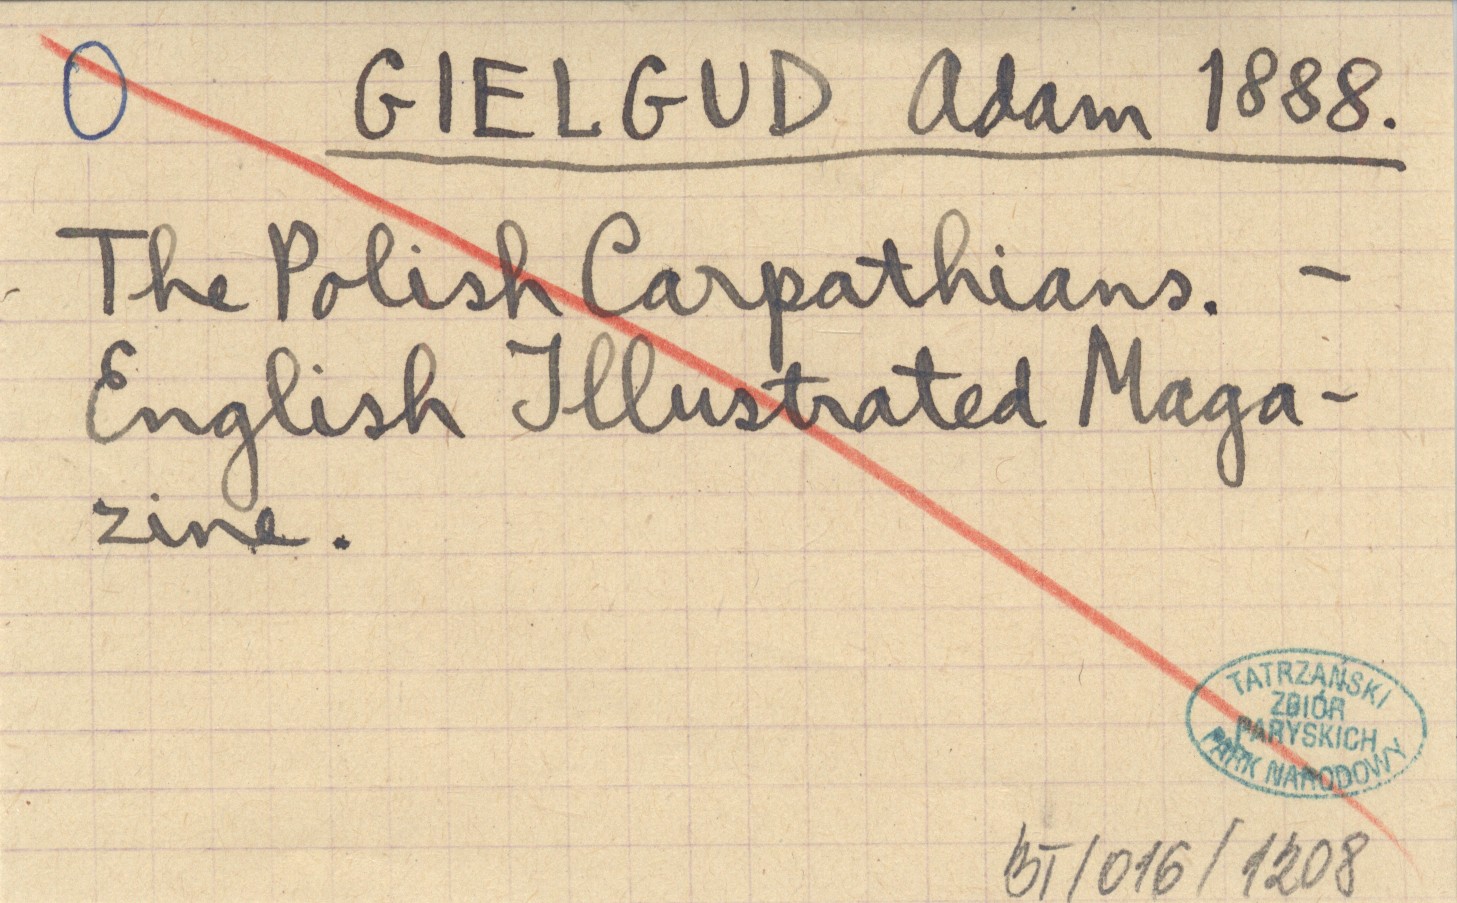 O GIELGUD Adam 1888.
The Polish Carpathians. –
English Illustrated Maga-
zine.
TATRZAŃSKI
ZBIÓR
PARYSKICH
PARK NARODOWY
BT/016/1208